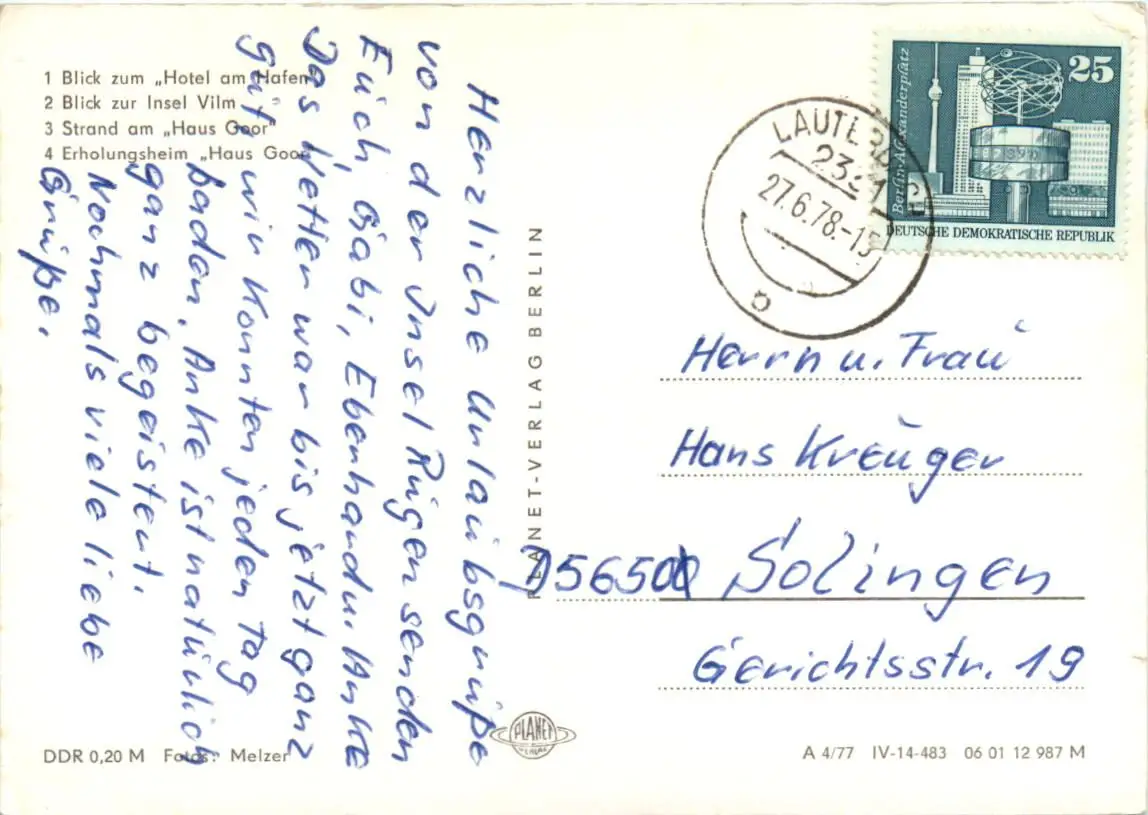 1 Blick zum „Hotel am Hafen"
2 Blick zur Insel Vilm
3 Strand am „Haus Goor"
4 Erholungsheim „Haus Goor"
Herzliche Urlaubsgrüße
von der Insel Rügen senden
Euch Gabi, Eberhard u. Anke
Das Wetter war bis jetzt ganz
gut, wir konnten jeden Tag
baden. Anke ist natürlich
ganz begeistert.
Nochmals viele liebe
Grüße.
PLANET-VERLAG BERLIN
27.6.78.-15
Berlin-Alexanderplatz
25
DEUTSCHE DEMOKRATISCHE REPUBLIK
Herrn u. Frau
Hans Kreuger
D5650 Solingen
Gerichtsstr. 19
DDR 0,20 M Fotos: Melzer
PLANET
VERLAG
A 4/77 IV-14-483 06 01 12 987 M